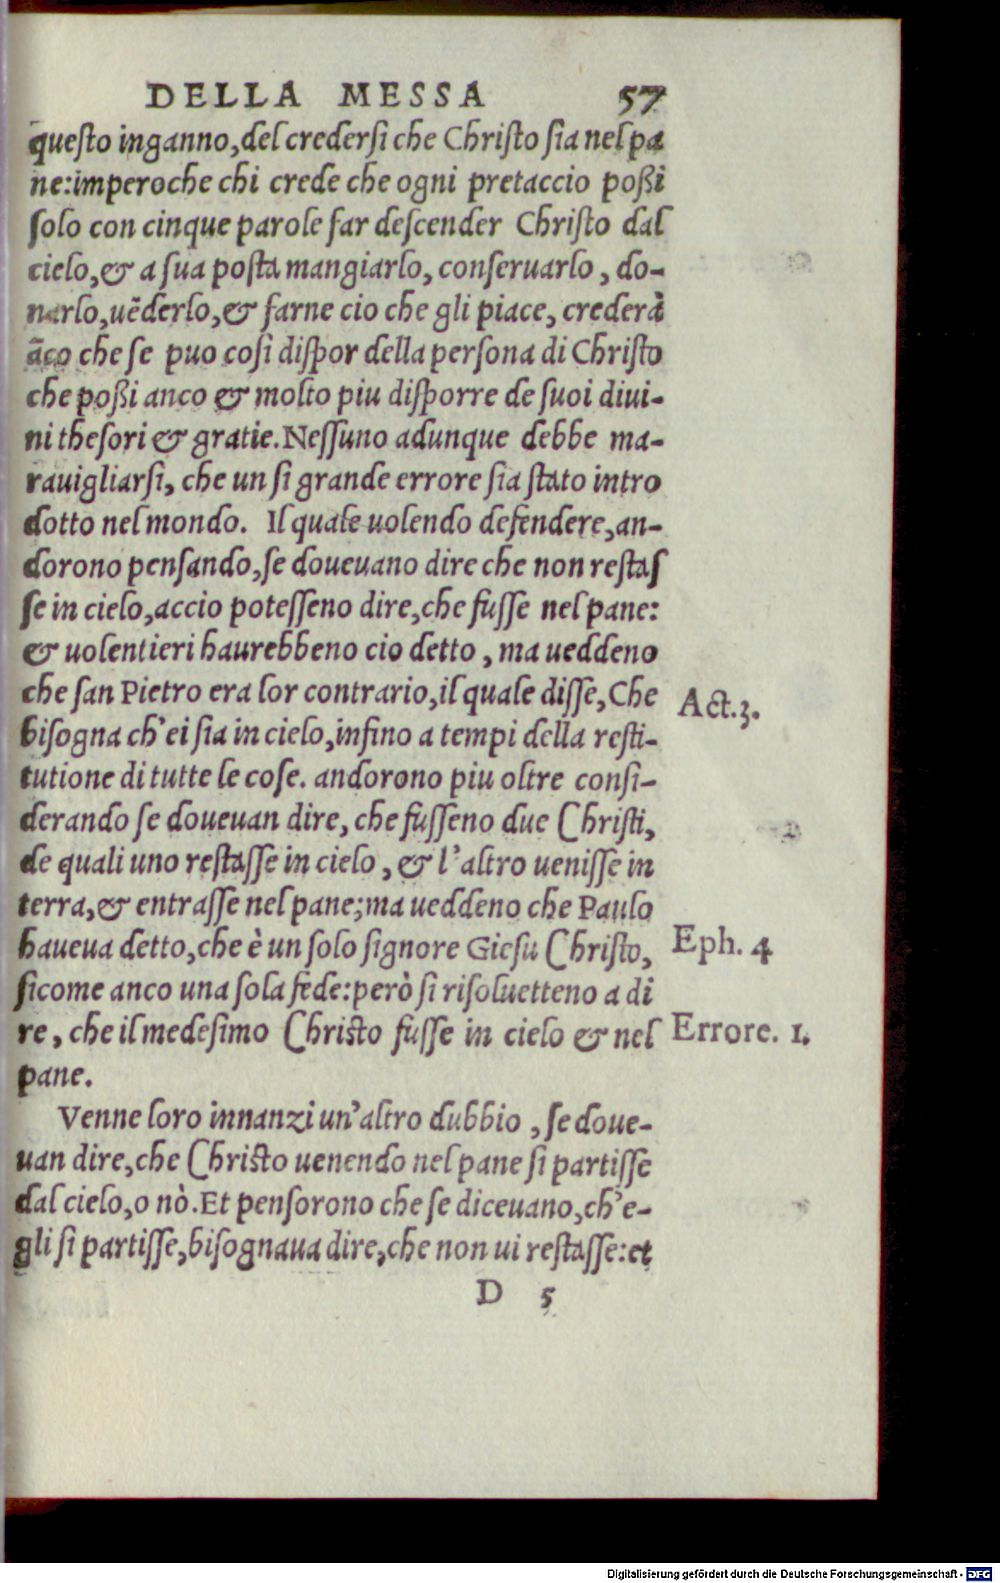 DELLA MESSA 57
questo inganno, del credersi che Christo sia nel pa
ne: imperoche chi crede che ogni pretaccio poßi
solo con cinque parole far descender Christo dal
cielo, & a sua posta mangiarlo, conseruarlo, do-
narlo, uẽderlo, & farne cio che gli piace, crederà
ãco che se puo cosi dispor della persona di Christo
che poßi anco & molto piu disporre de suoi diui-
ni thesori & gratie. Nessuno adunque debbe ma-
rauigliarsi, che un si grande errore sia stato intro
dotto nel mondo. Il quale uolendo defendere, an-
dorono pensando, se doueuano dire che non restas
se in cielo, accio potesseno dire, che fusse nel pane:
& uolentieri haurebbeno cio detto, ma ueddeno
che san Pietro era lor contrario, il quale disse, Che
Act.3.
bisogna ch'ei sia in cielo, infino a tempi della resti-
tutione di tutte le cose. andorono piu oltre consi-
derando se doueuan dire, che fusseno due Christi,
de quali uno restasse in cielo, & l'altro uenisse in
terra, & entrasse nel pane; ma ueddeno che Paulo
haueua detto, che è un solo signore Giesu Christo,
Eph. 4
sicome anco una sola fede: però si risoluetteno a di
re, che il medesimo Christo fusse in cielo & nel
Errore. 1.
pane.
Venne loro innanzi un'altro dubbio, se doue-
uan dire, che Christo uenendo nel pane si partisse
dal cielo, o nò. Et pensorono che se diceuano, ch'e-
gli si partisse, bisognaua dire, che non ui restasse: et
D 5
Digitalisierung gefördert durch die Deutsche Forschungsgemeinschaft - DFG